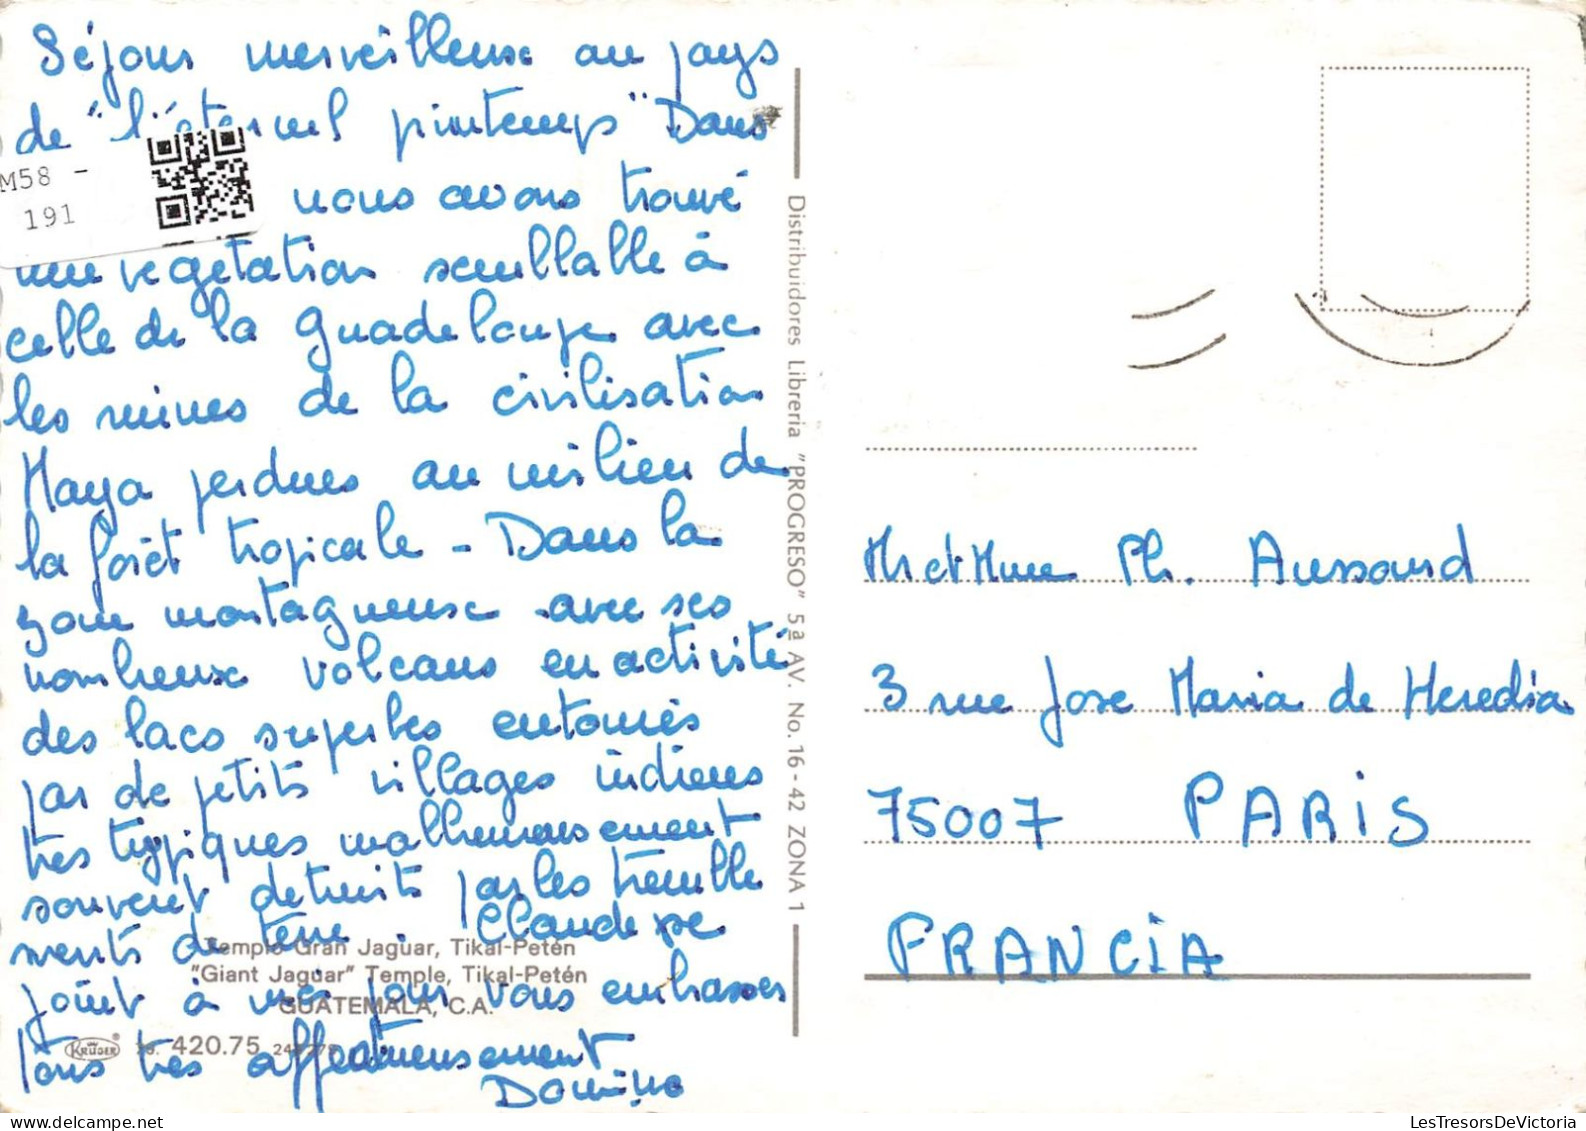 Séjour merveilleux au pays
de "l'éternel printemps" Dans
nous avons trouvé
une vegetation semblable à
celle de la Guadeloupe avec
les ruines de la civilisation
Maya perdues au milieu de
la forêt tropicale - Dans la
zone montagneuse avec ses
nombreux volcans en activité
des lacs superbes entourés
par de petits villages indiens
tres typiques malheureusement
souvent detruits par les tremble
ments de terre. Claude se
joint à moi pour vous embrasser
tous tres affectueusement
Domino
M58 -
191
Templo Gran Jaguar, Tikal-Petén
"Giant Jaguar" Temple, Tikal-Petén
GUATEMALA, C.A.
KRÜGER
420.75
Distribuidores Libreria "PROGRESO" 5ª AV. No. 16-42 ZONA 1
Mr et Mme Ph. Aussourd
3 rue Jose Maria de Heredia
75007 PARIS
FRANCIA
LesTresorsDeVictoria